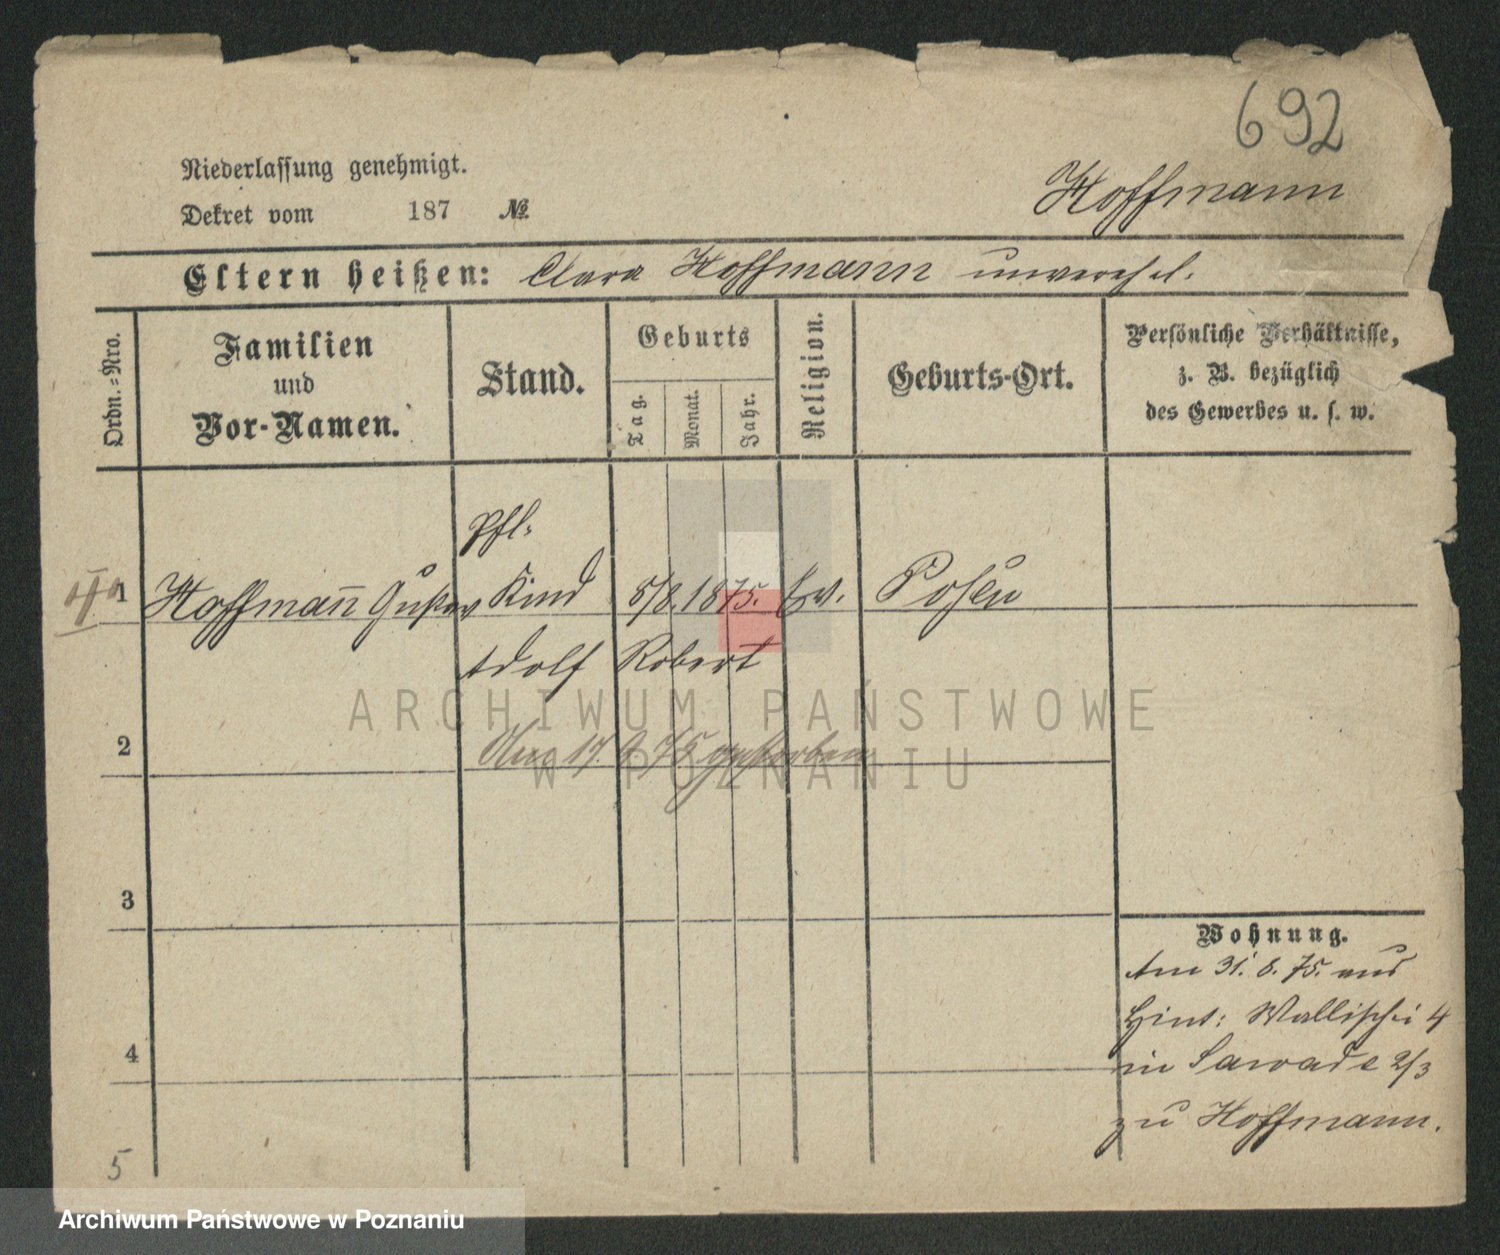 692
Niederlassung genehmigt.
Dekret vom 187 №
Hoffmann
Eltern heißen: Clara Hoffmann unverehel.
Ordn.-Nro.
Familien
und
Vor-Namen.
Stand.
Geburts
Tag.
Monat.
Jahr.
Religion.
Geburts-Ort.
Persönliche Verhältnisse,
z. B. bezüglich
des Gewerbes u. s. w.
Pfl.
1 Hoffmann Gustav Kind 5/8. 1875. Ev. Posen
Adolf Robert
2
17. 9. 75 gestorben
3
4
5
Wohnung.
Am 31. 8. 75. aus
Hint: Wallischei 4
in Sawade 2/3
zu Hoffmann.
ARCHIWUM PAŃSTWOWE
W POZNANIU
Archiwum Państwowe w Poznaniu